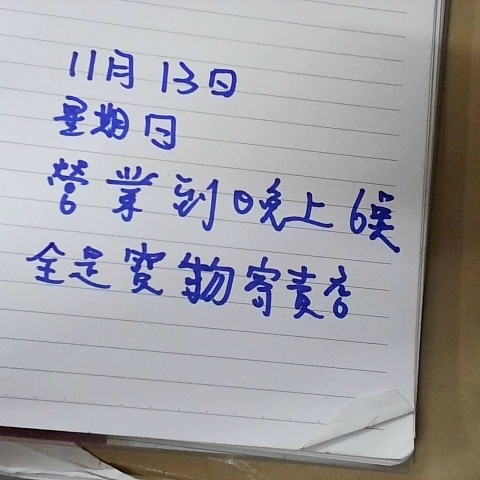 11月13日
星期日
營業到晚上6奌
全是寶物寄賣店